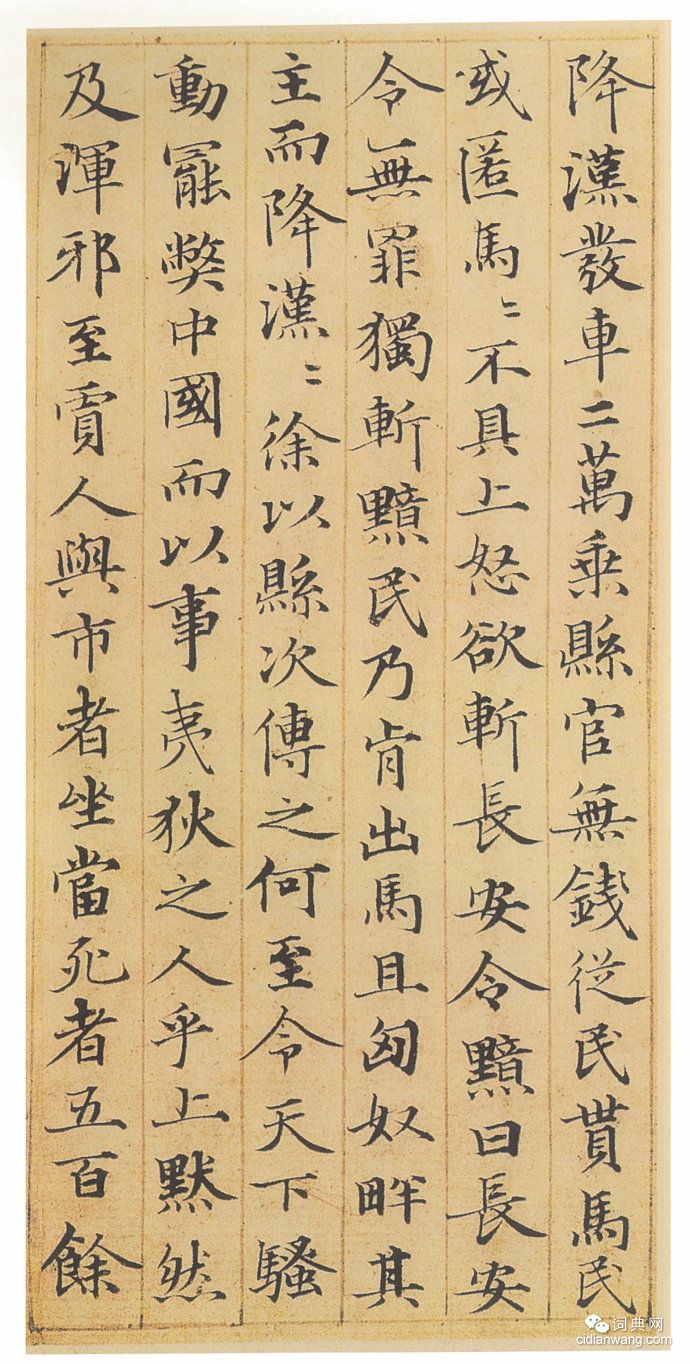 降漢發車二萬乗縣官無錢從民貰馬民
或匿馬〻不具上怒欲斬長安令黯曰長安
令無罪獨斬黯民乃肯出馬且匈奴畔其
主而降漢〻徐以縣次傳之何至令天下騷
動罷弊中國而以事夷狄之人乎上黙然
及渾邪至賈人與市者坐當死者五百餘
词典网
cidianwang.com